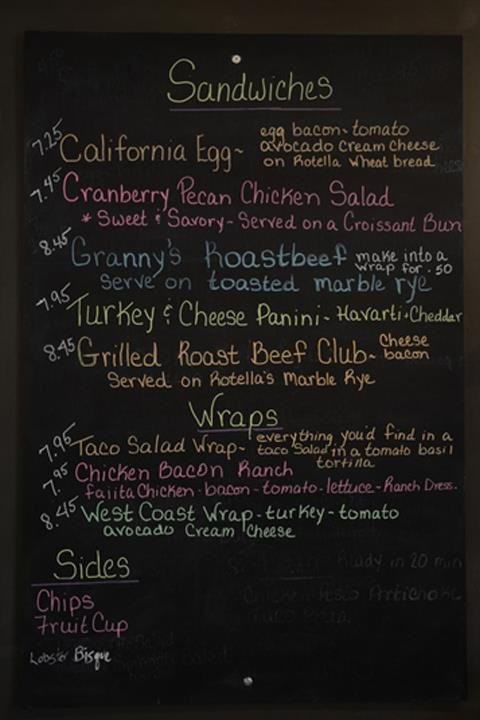 Sandwiches
7.25 California Egg~ egg bacon tomato
avocado cream cheese
on Rotella wheat bread
7.45 Cranberry Pecan Chicken Salad
* Sweet & Savory - Served on a Croissant Bun
8.45 Granny's Roastbeef make into a
wrap for .50
serve on toasted marble rye
7.95 Turkey & Cheese Panini - Havarti・Cheddar
8.45 Grilled Roast Beef Club~ Cheese
bacon
Served on Rotella's Marble Rye
Wraps
7.95 Taco Salad Wrap~ everything you'd find in a
taco salad in a tomato basil
tortilla
7.95 Chicken Bacon Ranch
fajita Chicken - bacon - tomato - lettuce - Ranch Dress.
8.45 West Coast Wrap - turkey - tomato
avocado Cream Cheese
Sides
Ready in 20 min
Chips
Chicken Pesto Artichoke
Fruit Cup
Lobster Bisque